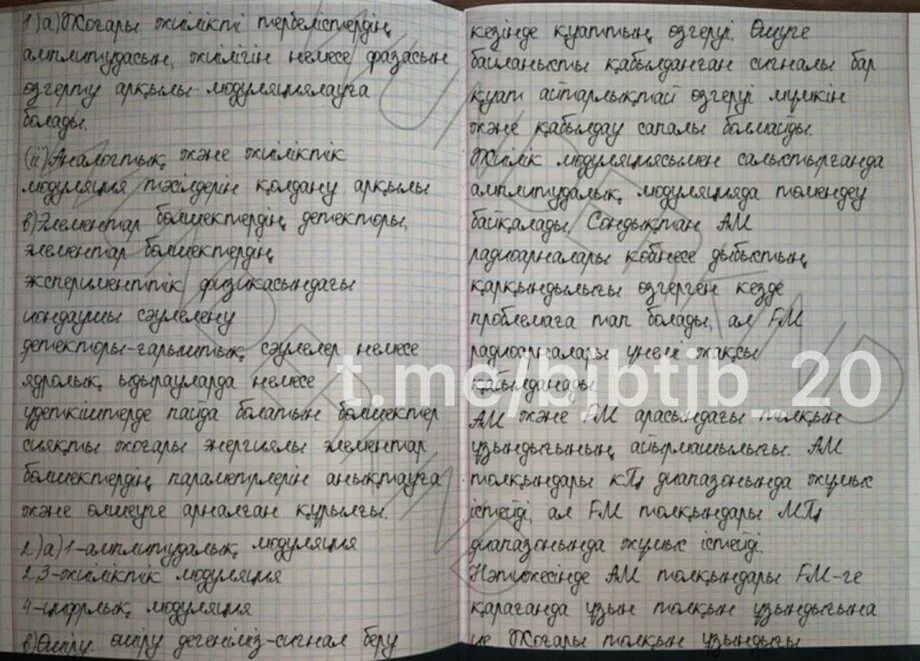 1) а) Жоғары жиілікті тербелістердің
амплитудасын, жиілігін немесе фазасын
өзгерту арқылы модуляциялауға
болады.
(ii) Аналогтық және жиіліктік
модуляция тәсілдерін қолдану арқылы
в) Элементар бөлшектердің детекторы,
элементар бөлшектердің
эксперименттік физикасындағы
иондаушы сәулелену
детекторы-ғарыштық сәулелер немесе
ядролық ыдырауларда немесе
үдеткіштерде пайда болатын бөлшектер
сияқты жоғары энергиялы элементар
бөлшектердің параметрлерін анықтауға
және өлшеуге арналған құрылғы.
2) а) 1-амплитудалық модуляция
2,3-жиіліктік модуляция
4-цифрлық модуляция
в) Өшіру. өшіру дегеніміз-сигнал беру
кезінде қуаттың өзгеруі. Өшуге
байланысты қабылданған сигналы бар
қуат айтарлықтай өзгеруі мүмкін
және қабылдау сапалы болмайды.
Жиілік модуляциясымен салыстырғанда
амплитудалық модуляцияда төмендеу
байқалады. Сондықтан АМ
радиоарналары көбінесе дыбыстың
қарқындылығы өзгерген кезде
проблемаға тап болады, ал FM
радиоарналары үнемі жақсы
қабылданады
АМ және FM арасындағы толқын
ұзындығының айырмашылығы. АМ
толқындары кГц диапазонында жұмыс
істейді, ал FM толқындары МГц
диапазонында жұмыс істейді.
Нәтижесінде АМ толқындары FM-ге
қарағанда ұзын толқын ұзындығына
ие Жоғары толқын ұзындығы
t.me/bjbtjb_20